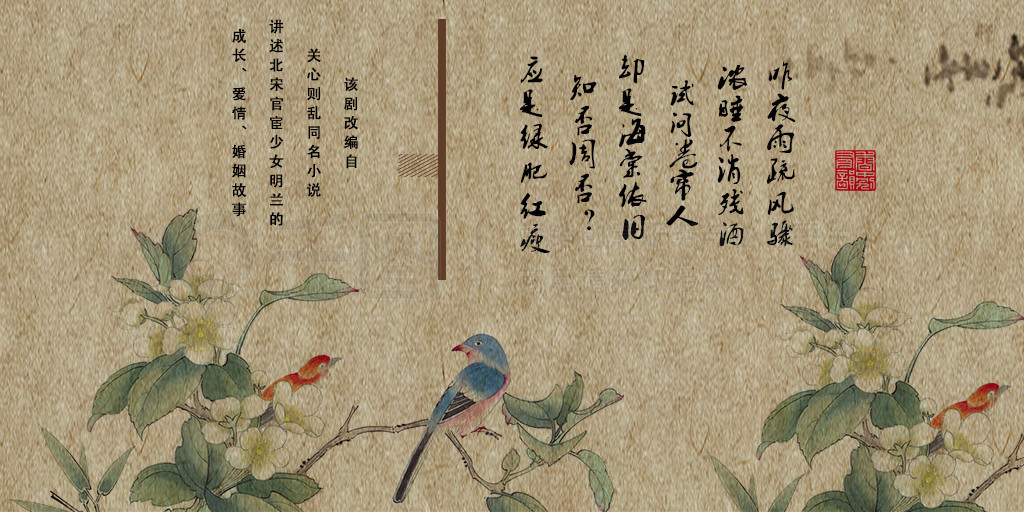 昨夜雨疏风骤
浓睡不消残酒
试问卷帘人
却是海棠依旧
知否周否?
应是绿肥红瘦
该剧改编自
关心则乱同名小说
讲述北宋官宦少女明兰的
成长、爱情、婚姻故事